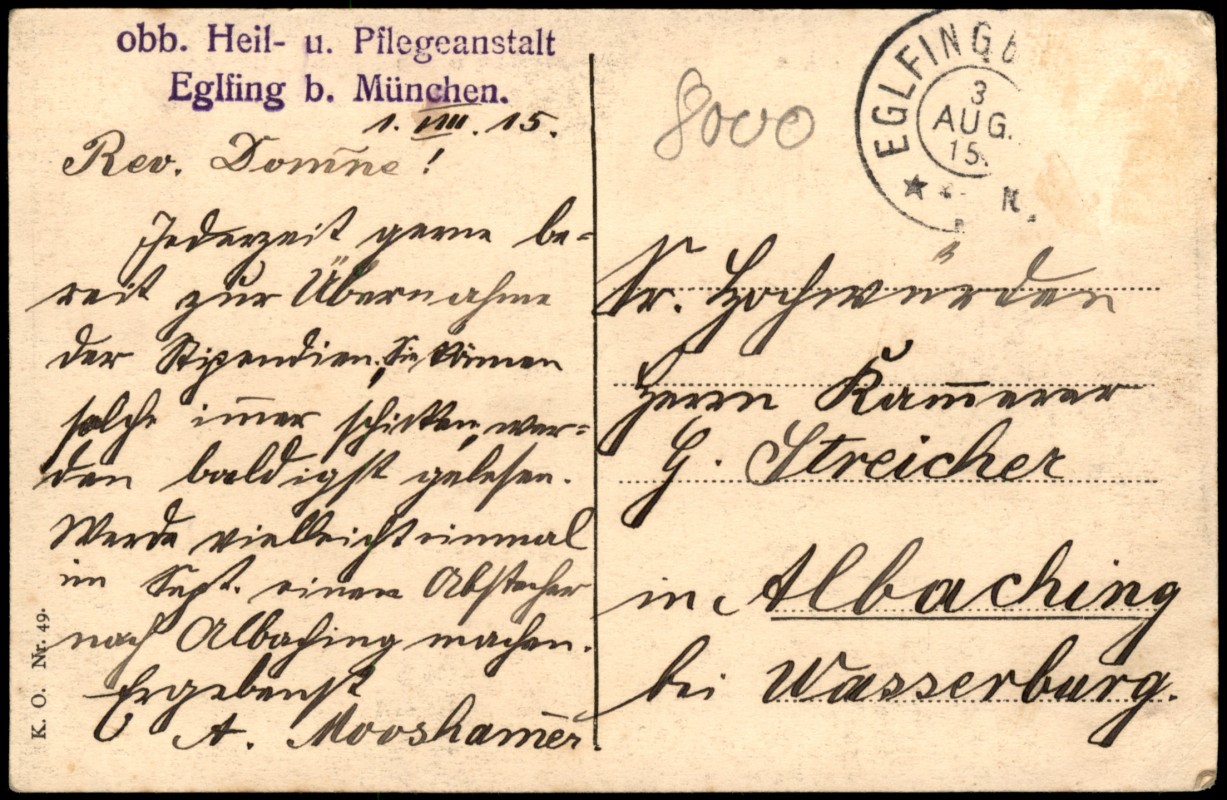 obb. Heil- u. Pflegeanstalt
Eglfing b. München.
1. VIII. 15.
Rev. Dom̅ne!
Jederzeit gerne be=
reit zur Übernahme
der Stipendien; Sie können
solche im̅er schicken, wer=
den baldigst gelesen.
Werde vielleicht einmal
im Sept. einen Abstecher
nach Albaching machen.
Ergebenst
A. Mooskam̅er
K. O. Nr. 49.
8000
EGLFING b
3
AUG.
15.
N.
Sr. Hochwürden
Herrn Kam̅erer
G. Streicher
in Albaching
bei Wasserburg.